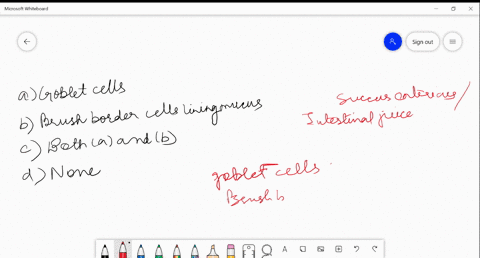 Microsoft Whiteboard
Sign out
a) Goblet cells
b) Brush border cells lining mucus
c) Both (a) and (b)
d) None
Succus entericus /
Intestinal juice
goblet cells
Brush b
A